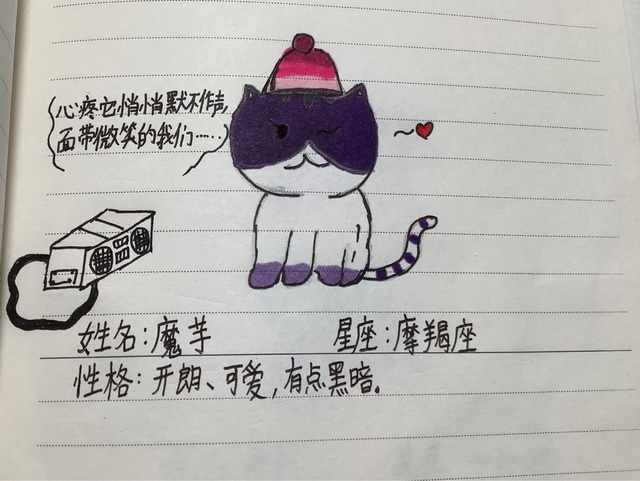 心疼它悄悄默不作声,
面带微笑的我们……
姓名:魔芋
星座:摩羯座
性格:开朗、可爱,有点黑暗.